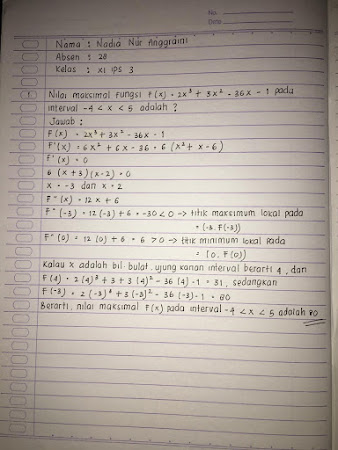 No.
Date
Nama : Nadia Nur Anggraini
Absen : 20
Kelas : XI IPS 3
1. Nilai maksimal fungsi f(x) = 2x³ + 3x² - 36x - 1 pada
interval -4 < x < 5 adalah ?
Jawab :
F(x) = 2x³ + 3x² - 36x - 1
F'(x) = 6x² + 6x - 36 = 6 (x² + x - 6)
F'(x) = 0
6 (x + 3)(x - 2) = 0
x = -3 dan x = 2
F"(x) = 12x + 6
F"(-3) = 12 (-3) + 6 = -30 < 0 → titik maksimum lokal pada
= (-3. F(-3))
F"(0) = 12 (0) + 6 = 6 > 0 → titik minimum lokal pada
= (0. F(0))
Kalau x adalah bil. bulat, ujung kanan interval berarti 4, dan
F(4) = 2(4)³ + 3 + 3(4)² - 36(4) - 1 = 31, sedangkan
F(-3) = 2(-3)³ + 3(-3)² - 36(-3) - 1 = 80
Berarti, nilai maksimal F(x) pada interval -4 < x < 5 adalah 80